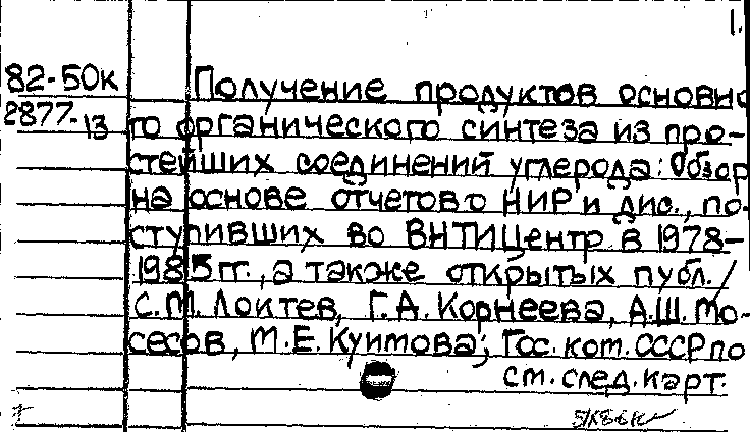 1.
82-50к
2877-13
Получение продуктов основно
го органического синтеза из про-
стейших соединений углерода: Обзор
на основе отчетов о НИР и дис., по-
ступивших во ВНТИЦентр в 1978-
1985 гг., а также открытых публ./
С.М. Локтев, Г.А. Корнеева, А.Ш. Мо-
сесов, М.Е. Куимова; Гос. ком. СССР по
см. след. карт.